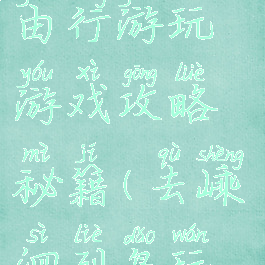 由行游玩
yóu xì gōng lüè
游戏攻略
mì jí qù shèng
秘籍(去嵊
sì liè dǎo wán
泗列岛玩